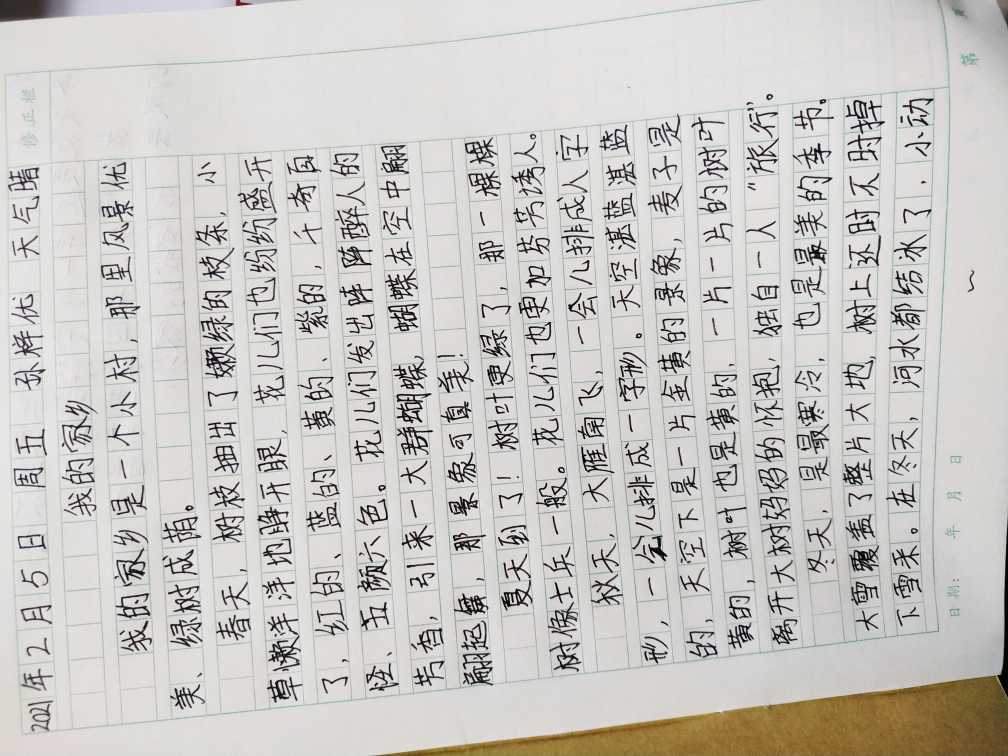 2021年2月5日 周五 孙样优 天气晴
修正栏
我的家乡
我的家乡是一个小村,那里风景优
美、绿树成荫。
春天,树枝抽出了嫩绿的枝条,小
草懒洋洋地睁开眼,花儿们也纷纷盛开
了,红的、蓝的、黄的、紫的,千奇百
怪、五颜六色。花儿们发出阵阵醉人的
芳香,引来一大群蝴蝶,蝴蝶在空中翩
翩起舞,那景象可真美!
夏天到了!树叶更绿了,那一棵棵
树像士兵一般。花儿们也更加芬芳诱人。
秋天,大雁南飞,一会儿排成人字
形,一会儿排成一字形。天空湛蓝湛蓝
的,天空下是一片金黄的景象,麦子是
黄的,树叶也是黄的,一片一片的树叶
离开大树妈妈的怀抱,独自一人“旅行”。
冬天,是最寒冷,也是最美的季节。
大雪覆盖了整片大地,树上还时不时掉
下雪来。在冬天,河水都结冰了.小动
日期: 年 月 日
第